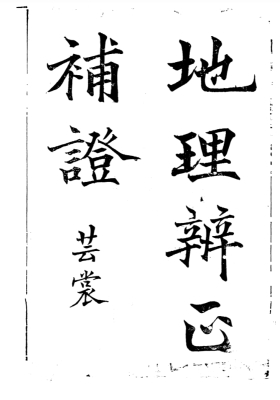 地理辨正
補證
芸裳